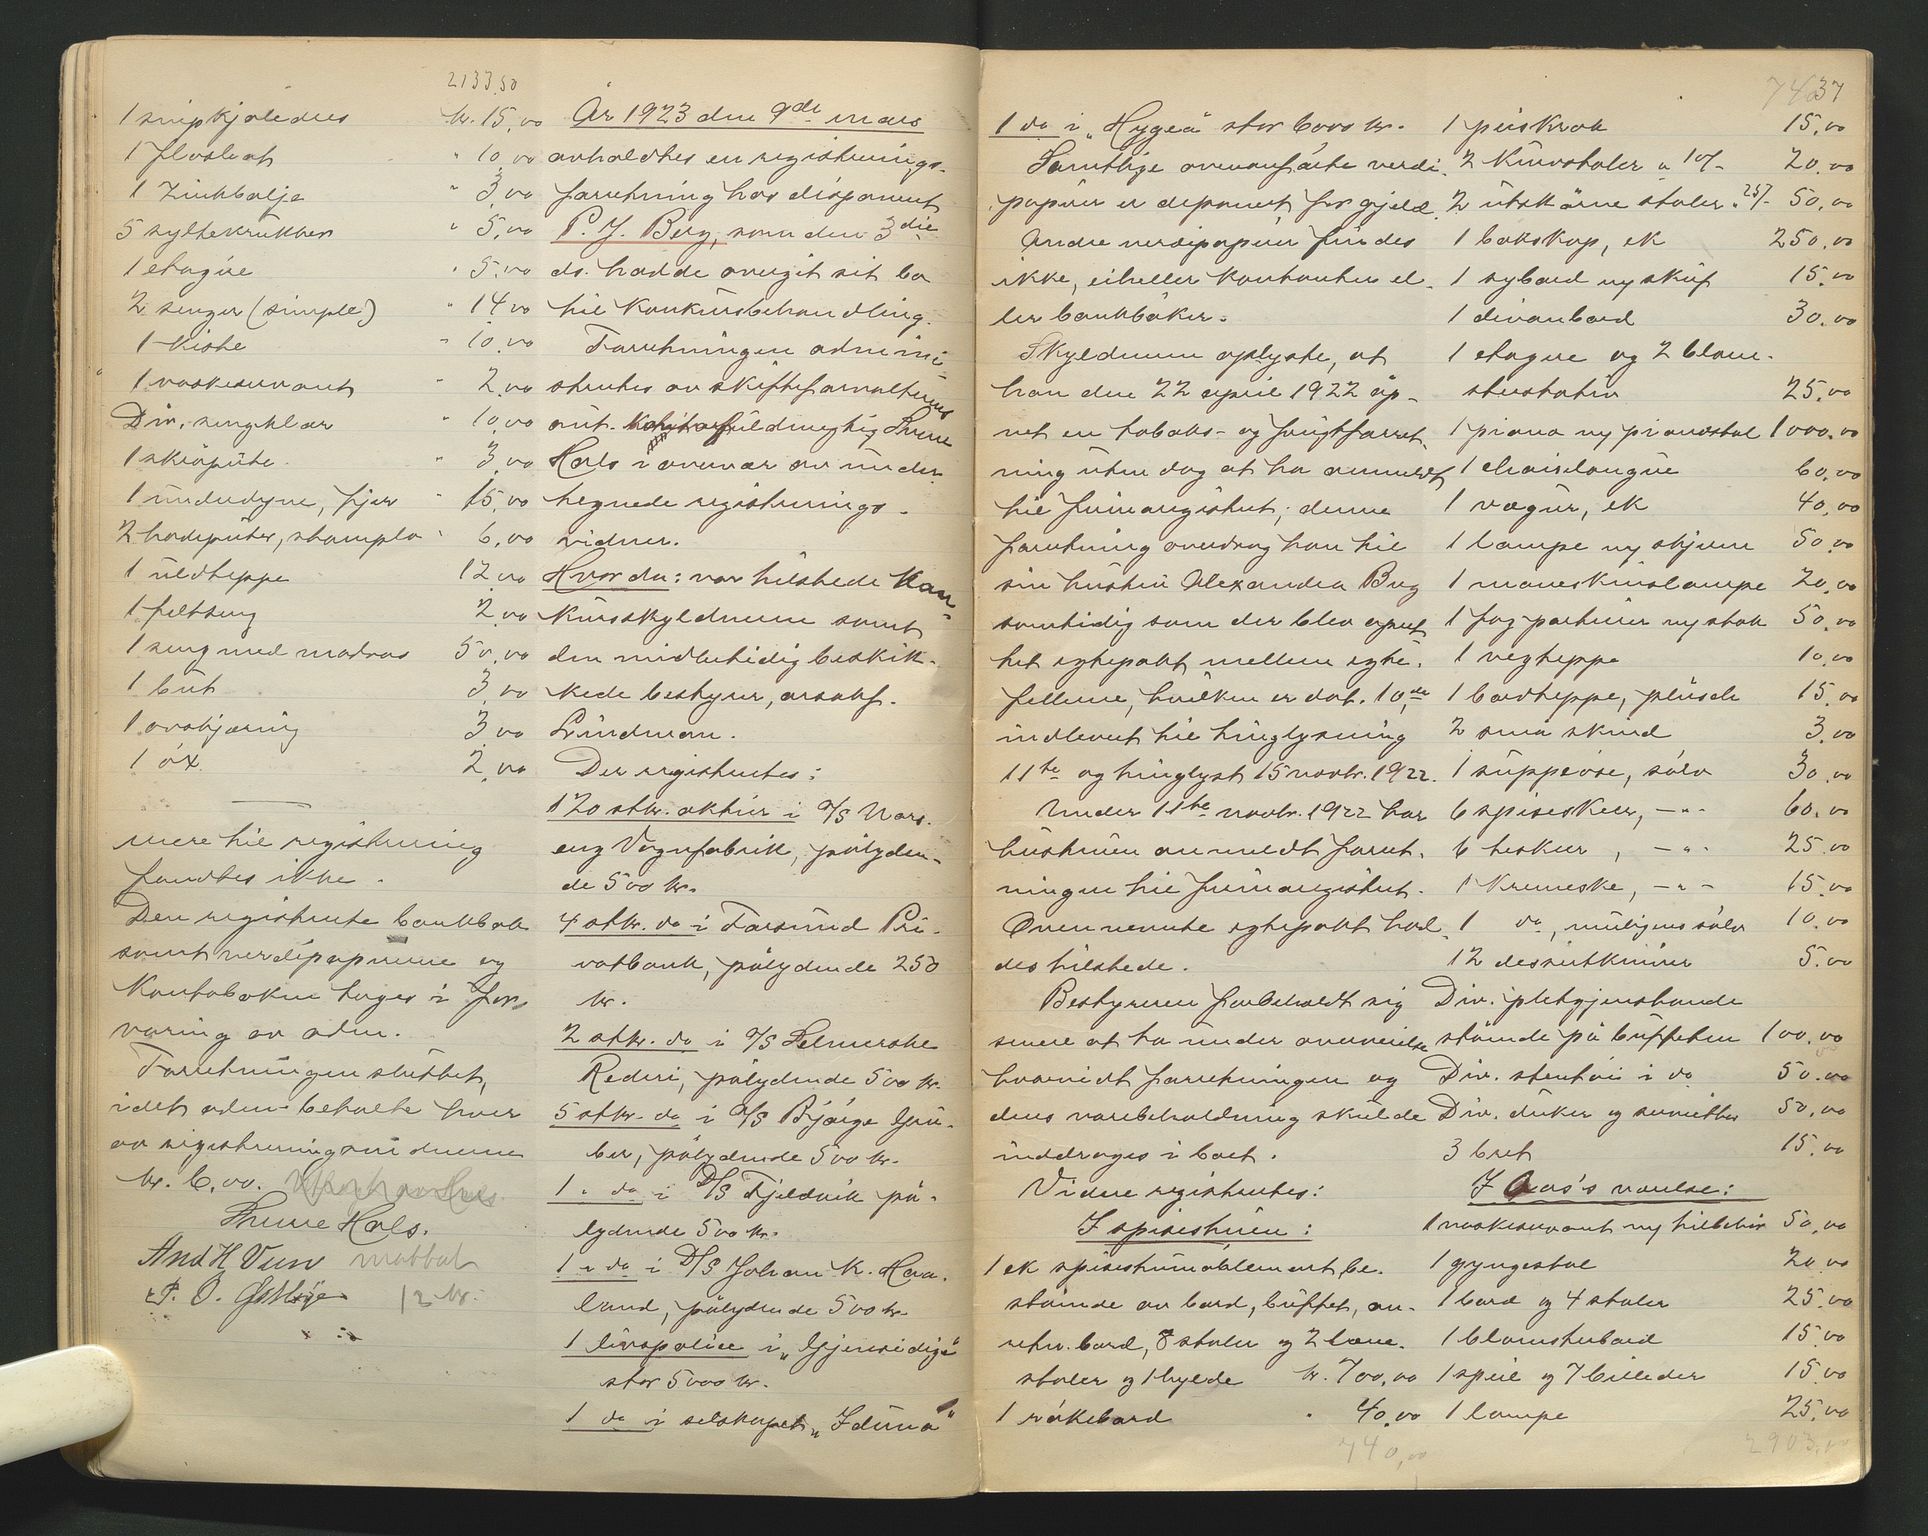 2133.50
1 snipkjoledres kr. 15,00
1 floshat " 10,00
1 Zinkbalje " 3,00
5 syltekrukker " 5,00
1 etagére " 5,00
2 senger (simple) " 14,00
1 kiste " 10,00
1 vaskeservant " 2,00
Div. sengklær " 10,00
1 skråpute " 3,00
1 underdyne, fjær " 15,00
2 hodeputer, stoppla " 6,00
1 uldteppe 12,00
1 feltseng 2,00
1 seng med madras 50,00
1 büt 3,00
1 ovnskjæring 3,00
1 öx 2,00
mere til registrering
fandtes ikke.
Den registrerte bankbok
samt verdipapirene og
kontobøken toges i for-
varing av adm.
Forretningen sluttet,
idet adm. betalte hver
av registreringsvidnene
kr. 6,00.
Thure Hals.
And H Veen
P. O.
12 kr.
År 1923 den 9de mars
avholdtes en registrerings-
forretning hos disponent
P. J. Berg, som den 3die
ds. hadde avgit sit bo
til konkursbehandling.
Forretningen admini-
strertes av skifteforvalterens
aut. fuldmegtig Thure
Hals i overvær av under-
tegnede registrerings-
vidner.
Hvorda: var tilstede kon-
kursskyldneren samt
den midlertidig beskik-
kede bestyrer, o.r.sakf.
Lindman.
Der registrertes:
120 stkr. aktier i A/S Nors-
eng Vognfabrik, pålyden-
de 500 kr.
4 stkr. do i Farsund Pri-
vatbank, pålydende 250
kr.
2 stkr. do i A/S Lelmerske
Rederi, pålydende 500 kr.
5 stkr. do i A/S Bjørge Gru-
ber, pålydende 500 kr.
1 " do i D/S Fjeldvik på-
lydende 500 kr.
1 " do i D/S Johan K. Haa-
land, pålydende 500 kr.
1 livspolice i "Gjensidige"
stor 5000 kr.
1 do i selskapet "Iduna"
37
1 do i "Hygea" stor 6000 kr.
Samtlige ovenanførte verdi-
papirer er deponert for gjæld.
Andre verdipapirer findes
ikke, eiheller kontanter el-
ler bankbøker.
Skyldneren oplyste, at
han den 22 april 1922 åp-
net en tobaks- og frugtforret-
ning uten dog at ha anmeldt
til firmaregistret; denne
forretning overdrog han til
sin hustru Alexandra Berg
samtidig som der blev opret-
tet egtepakt mellem egte-
fellerne, hvilken er dat. 10de
indlevert til tinglysning
11te og tinglyst 15 novbr. 1922.
Under 11te novbr. 1922 har
hustruen anmeldt forret-
ningen til firmaregistret.
Ovennevnte egtepakt hol-
des tilstede.
Bestyreren forbeholdt sig
senere at ta under overveielse
hvorvidt forretningen og
dens varebeholdning skulde
inddrages i boet.
Videre registrertes:
I spisestuen:
1 ek spisestuemøblement be-
stående av bord, buffet, an-
retn. bord, 8 stoler og 2 læne-
stoler og 1 hylde kr. 700,00
1 røkebord " 40,00
740,00
1 peiskrok 15,00
2 kurvstoler a 10/- 20,00
2 utskårne stoler a 25/- 50,00
1 bokskap, ek 250,00
1 sybord m/ skuf 15,00
1 divanbord 30,00
1 etagere og 2 blom-
sterstativ 25,00
1 piano m/ pianostol 1000,00
1 chaiselongue 60,00
1 vægur, ek 40,00
1 lampe m/ skjerm 50,00
1 maaneskinslampe 20,00
1 fag portierer m/ stok 50,00
1 vegteppe 10,00
1 bordteppe, plüsch 15,00
2 små skind 3,00
1 suppeøse, sølv 30,00
6 spiseskeer, - " - 60,00
6 teskeer, - " - 25,00
1 kremske, - " - 15,00
1 do, muligens sølv 10,00
12 dessertkniver 5,00
Div. pletgjenstande
stående på buffeten 100,00
Div. stentøi i do 50,00
Div. duker og servietter 50,00
3 bret 15,00
I Aas's værelse:
1 vaskeservant m/ tilbehør 50,00
1 gyngestol 20,00
1 bord og 4 stoler 25,00
1 blomsterbord 15,00
1 speil og 7 billeder 15,00
1 lampe 25,00
2903,00